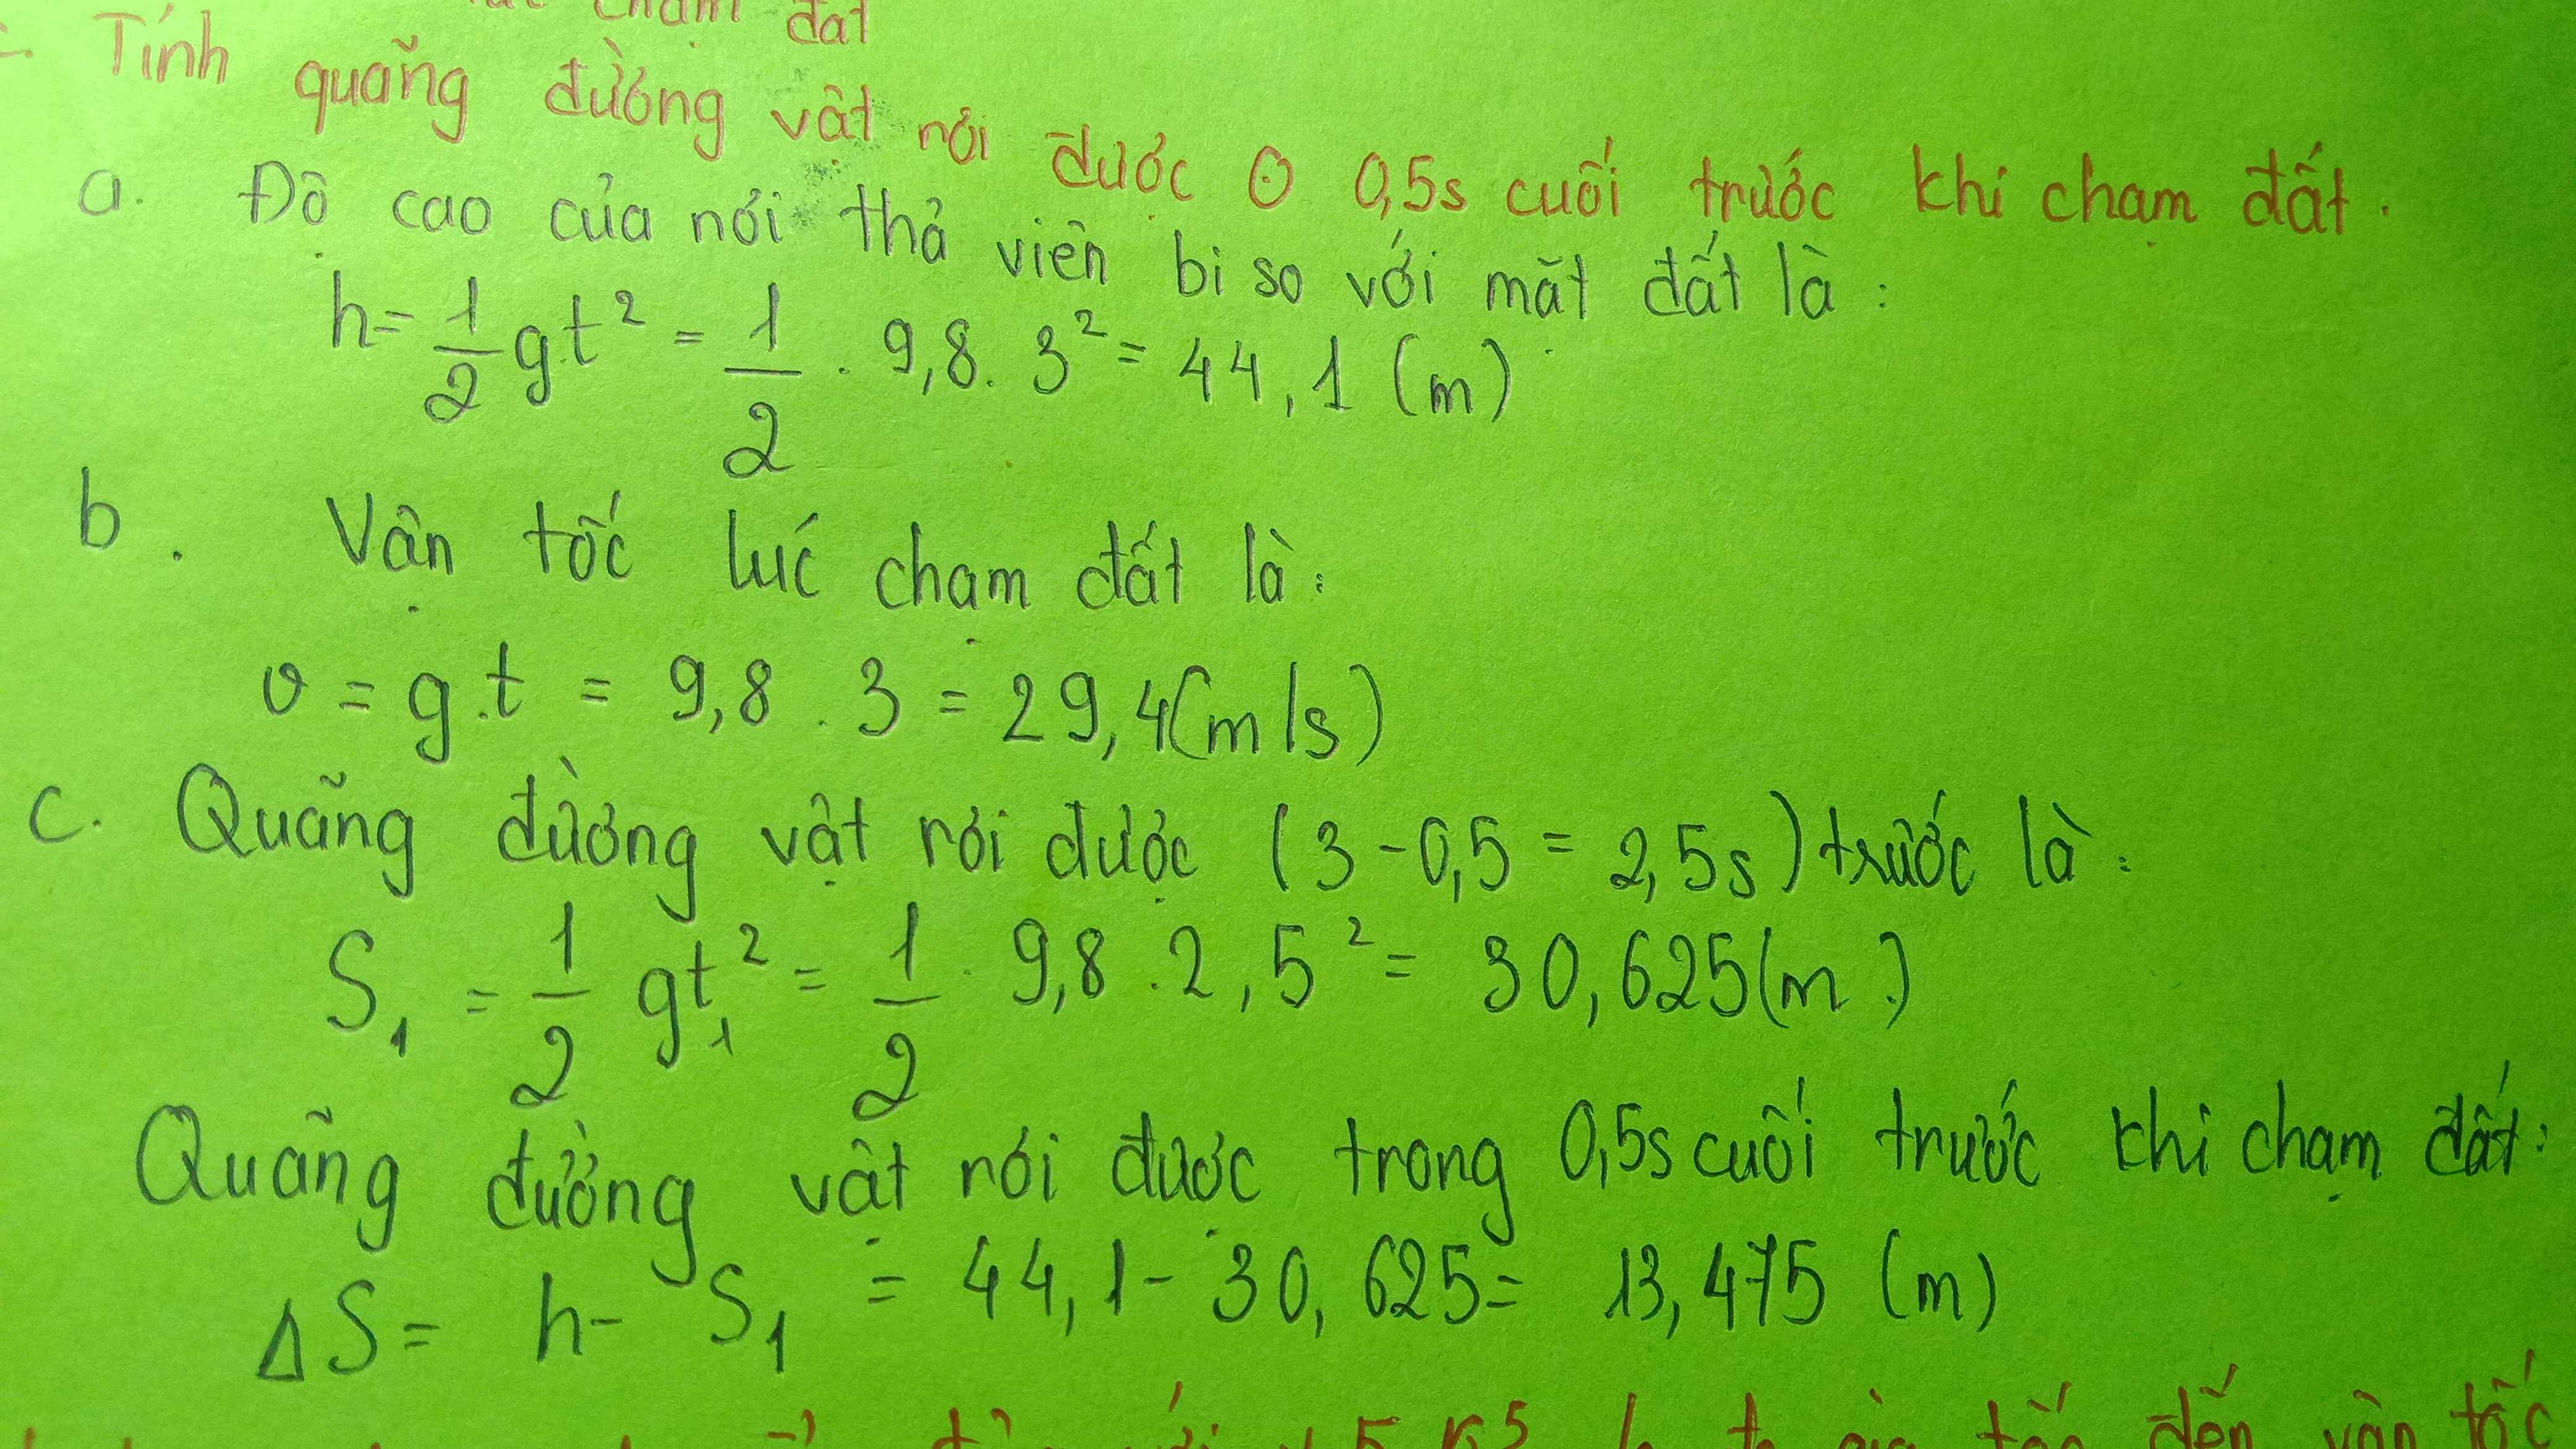 chạm đất
Tính quãng đường vật rơi được ở 0,5s cuối trước khi chạm đất.
a. Độ cao của nơi thả viên bi so với mặt đất là:
h = 1/2 g.t² = 1/2 . 9,8. 3² = 44,1 (m)
b. Vận tốc lúc chạm đất là:
v = g.t = 9,8 . 3 = 29,4(m/s)
c. Quãng đường vật rơi được (3 - 0,5 = 2,5s) trước là:
S₁ = 1/2 gt₁² = 1/2 . 9,8 . 2,5² = 30,625(m.)
Quãng đường vật rơi được trong 0,5s cuối trước khi chạm đất:
ΔS = h - S₁ = 44,1 - 30,625 = 13,475 (m)
tốc đến vận tốc